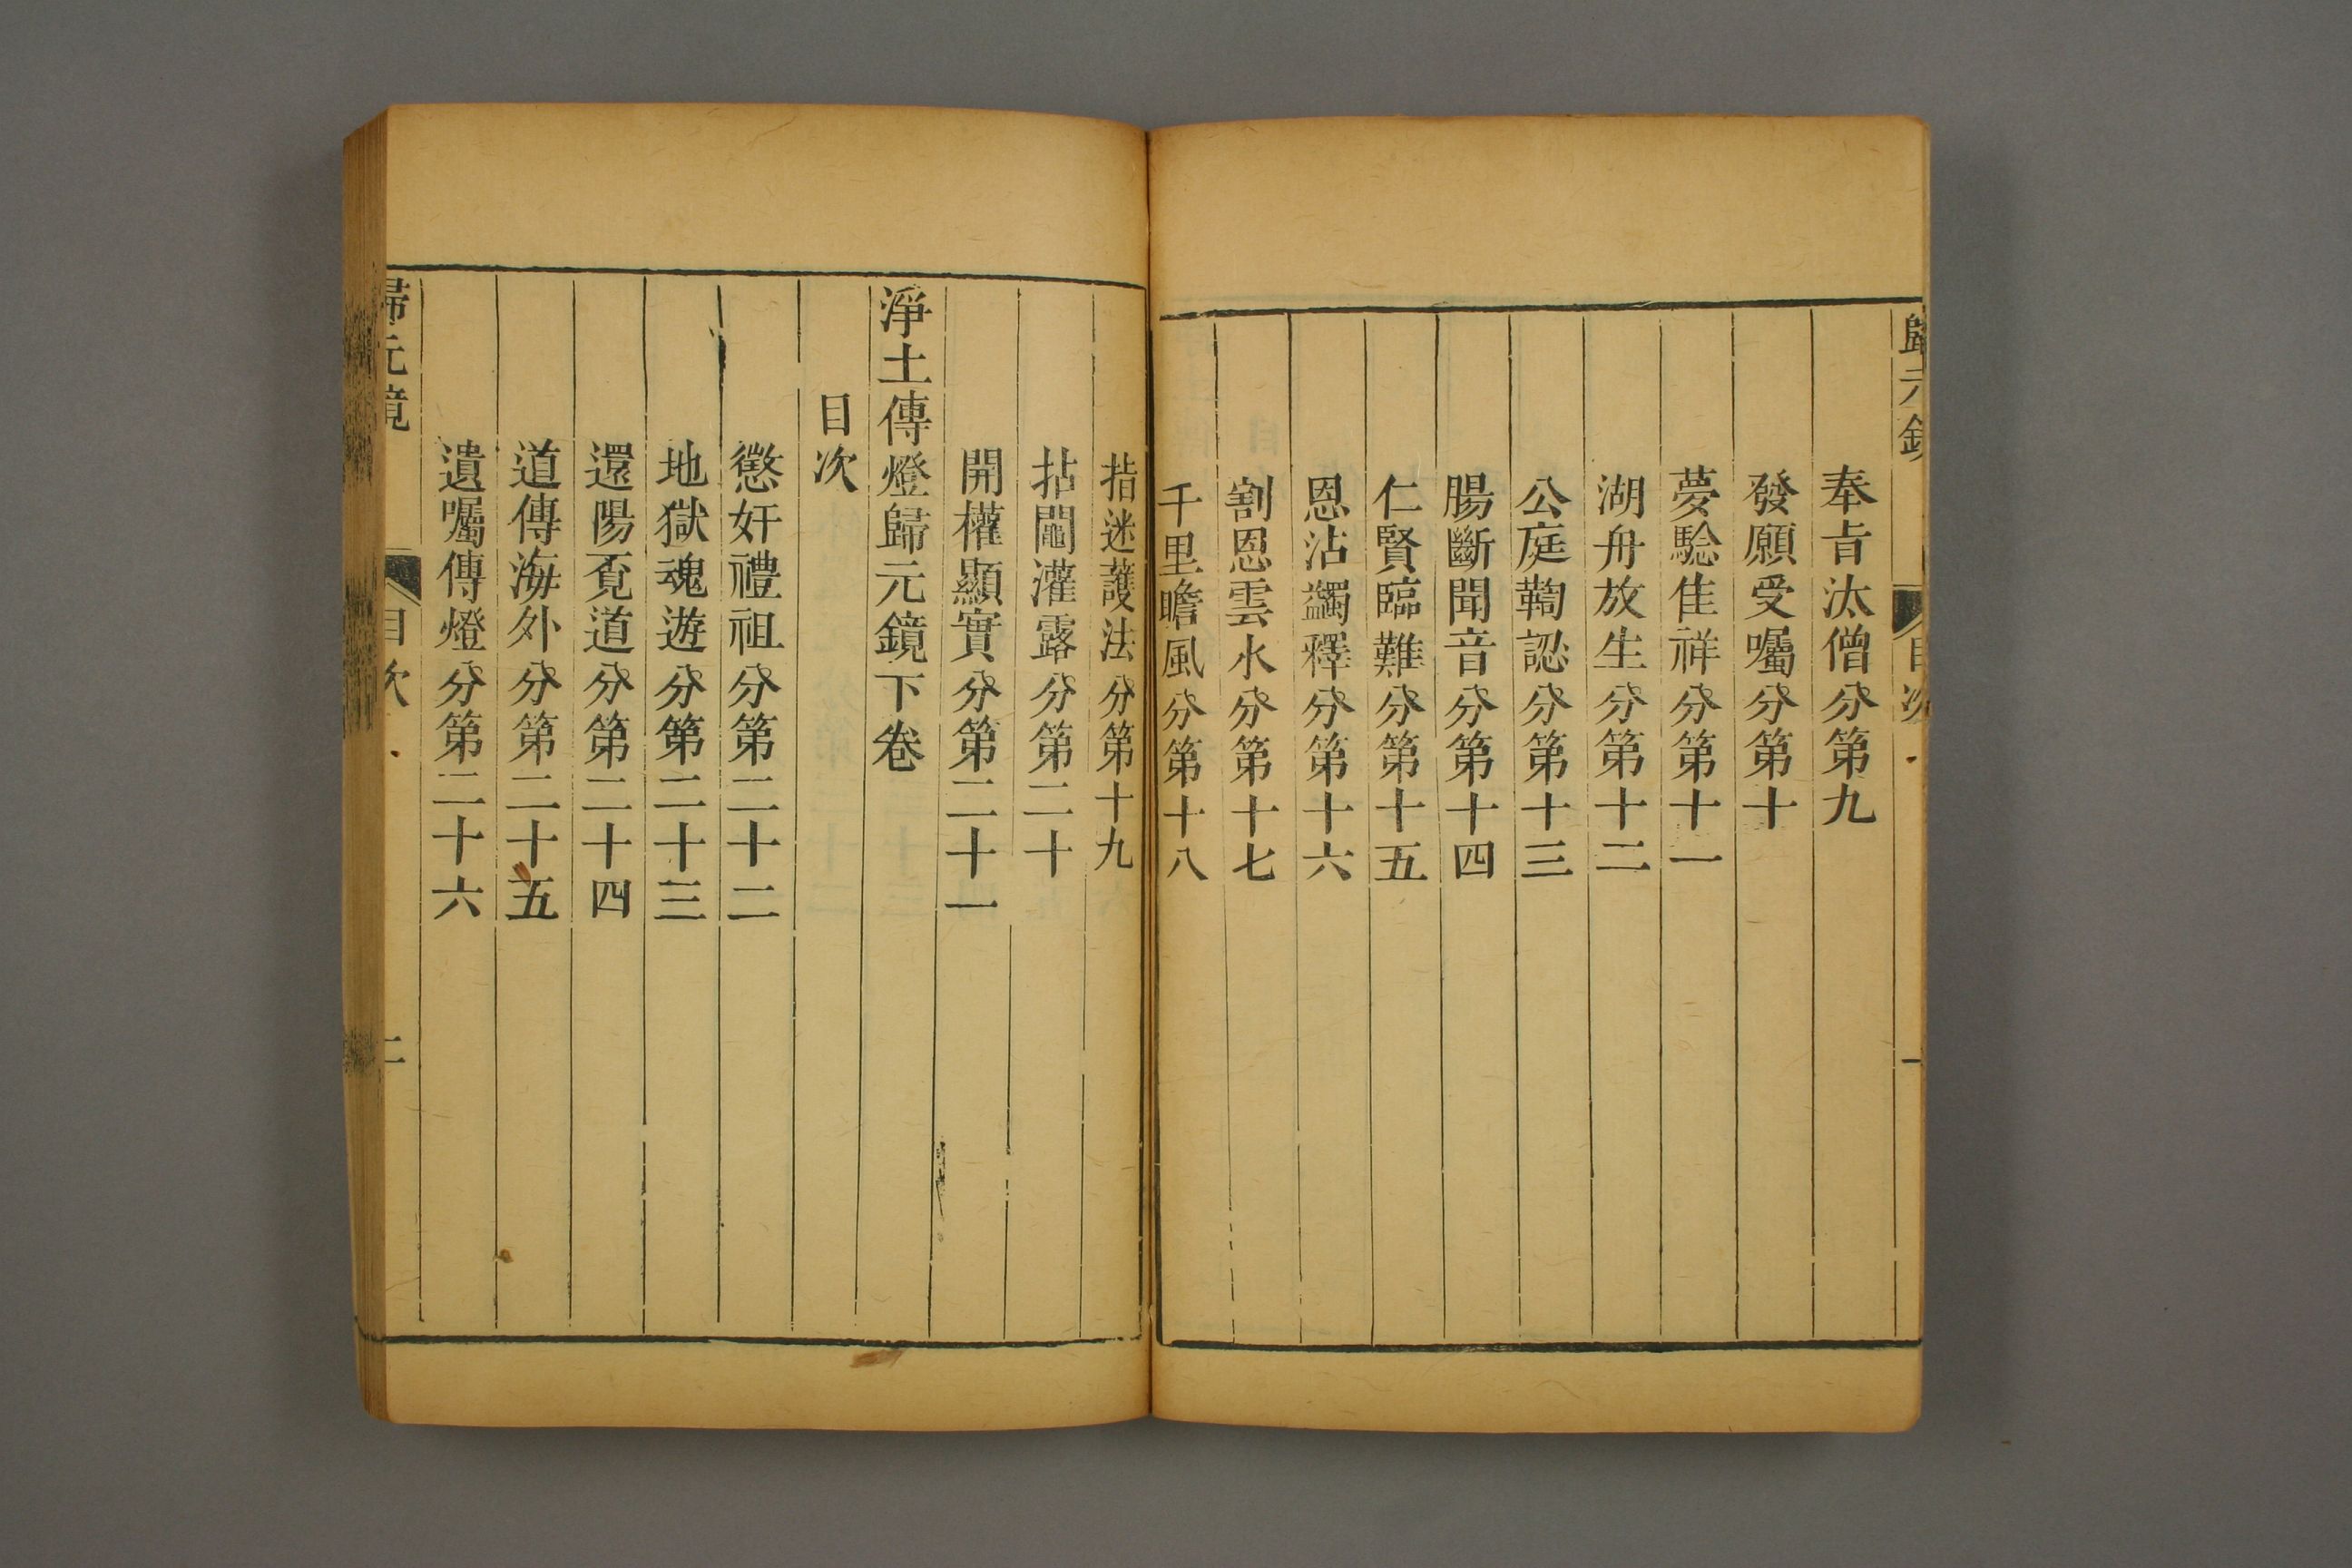 歸元鏡 目次 一
奉旨汰僧分第九
發願受囑分第十
夢騐佳祥分第十一
湖舟放生分第十二
公庭鞫認分第十三
腸斷聞音分第十四
仁賢臨難分第十五
恩沾蠲釋分第十六
割恩雲水分第十七
千里瞻風分第十八
指迷護法分第十九
拈鬮灌露分第二十
開權顯實分第二十一
淨土傳燈歸元鏡下卷
目次
懲奸禮祖分第二十二
地獄魂遊分第二十三
還陽覔道分第二十四
道傳海外分第二十五
遺囑傳燈分第二十六
歸元鏡 目次 二